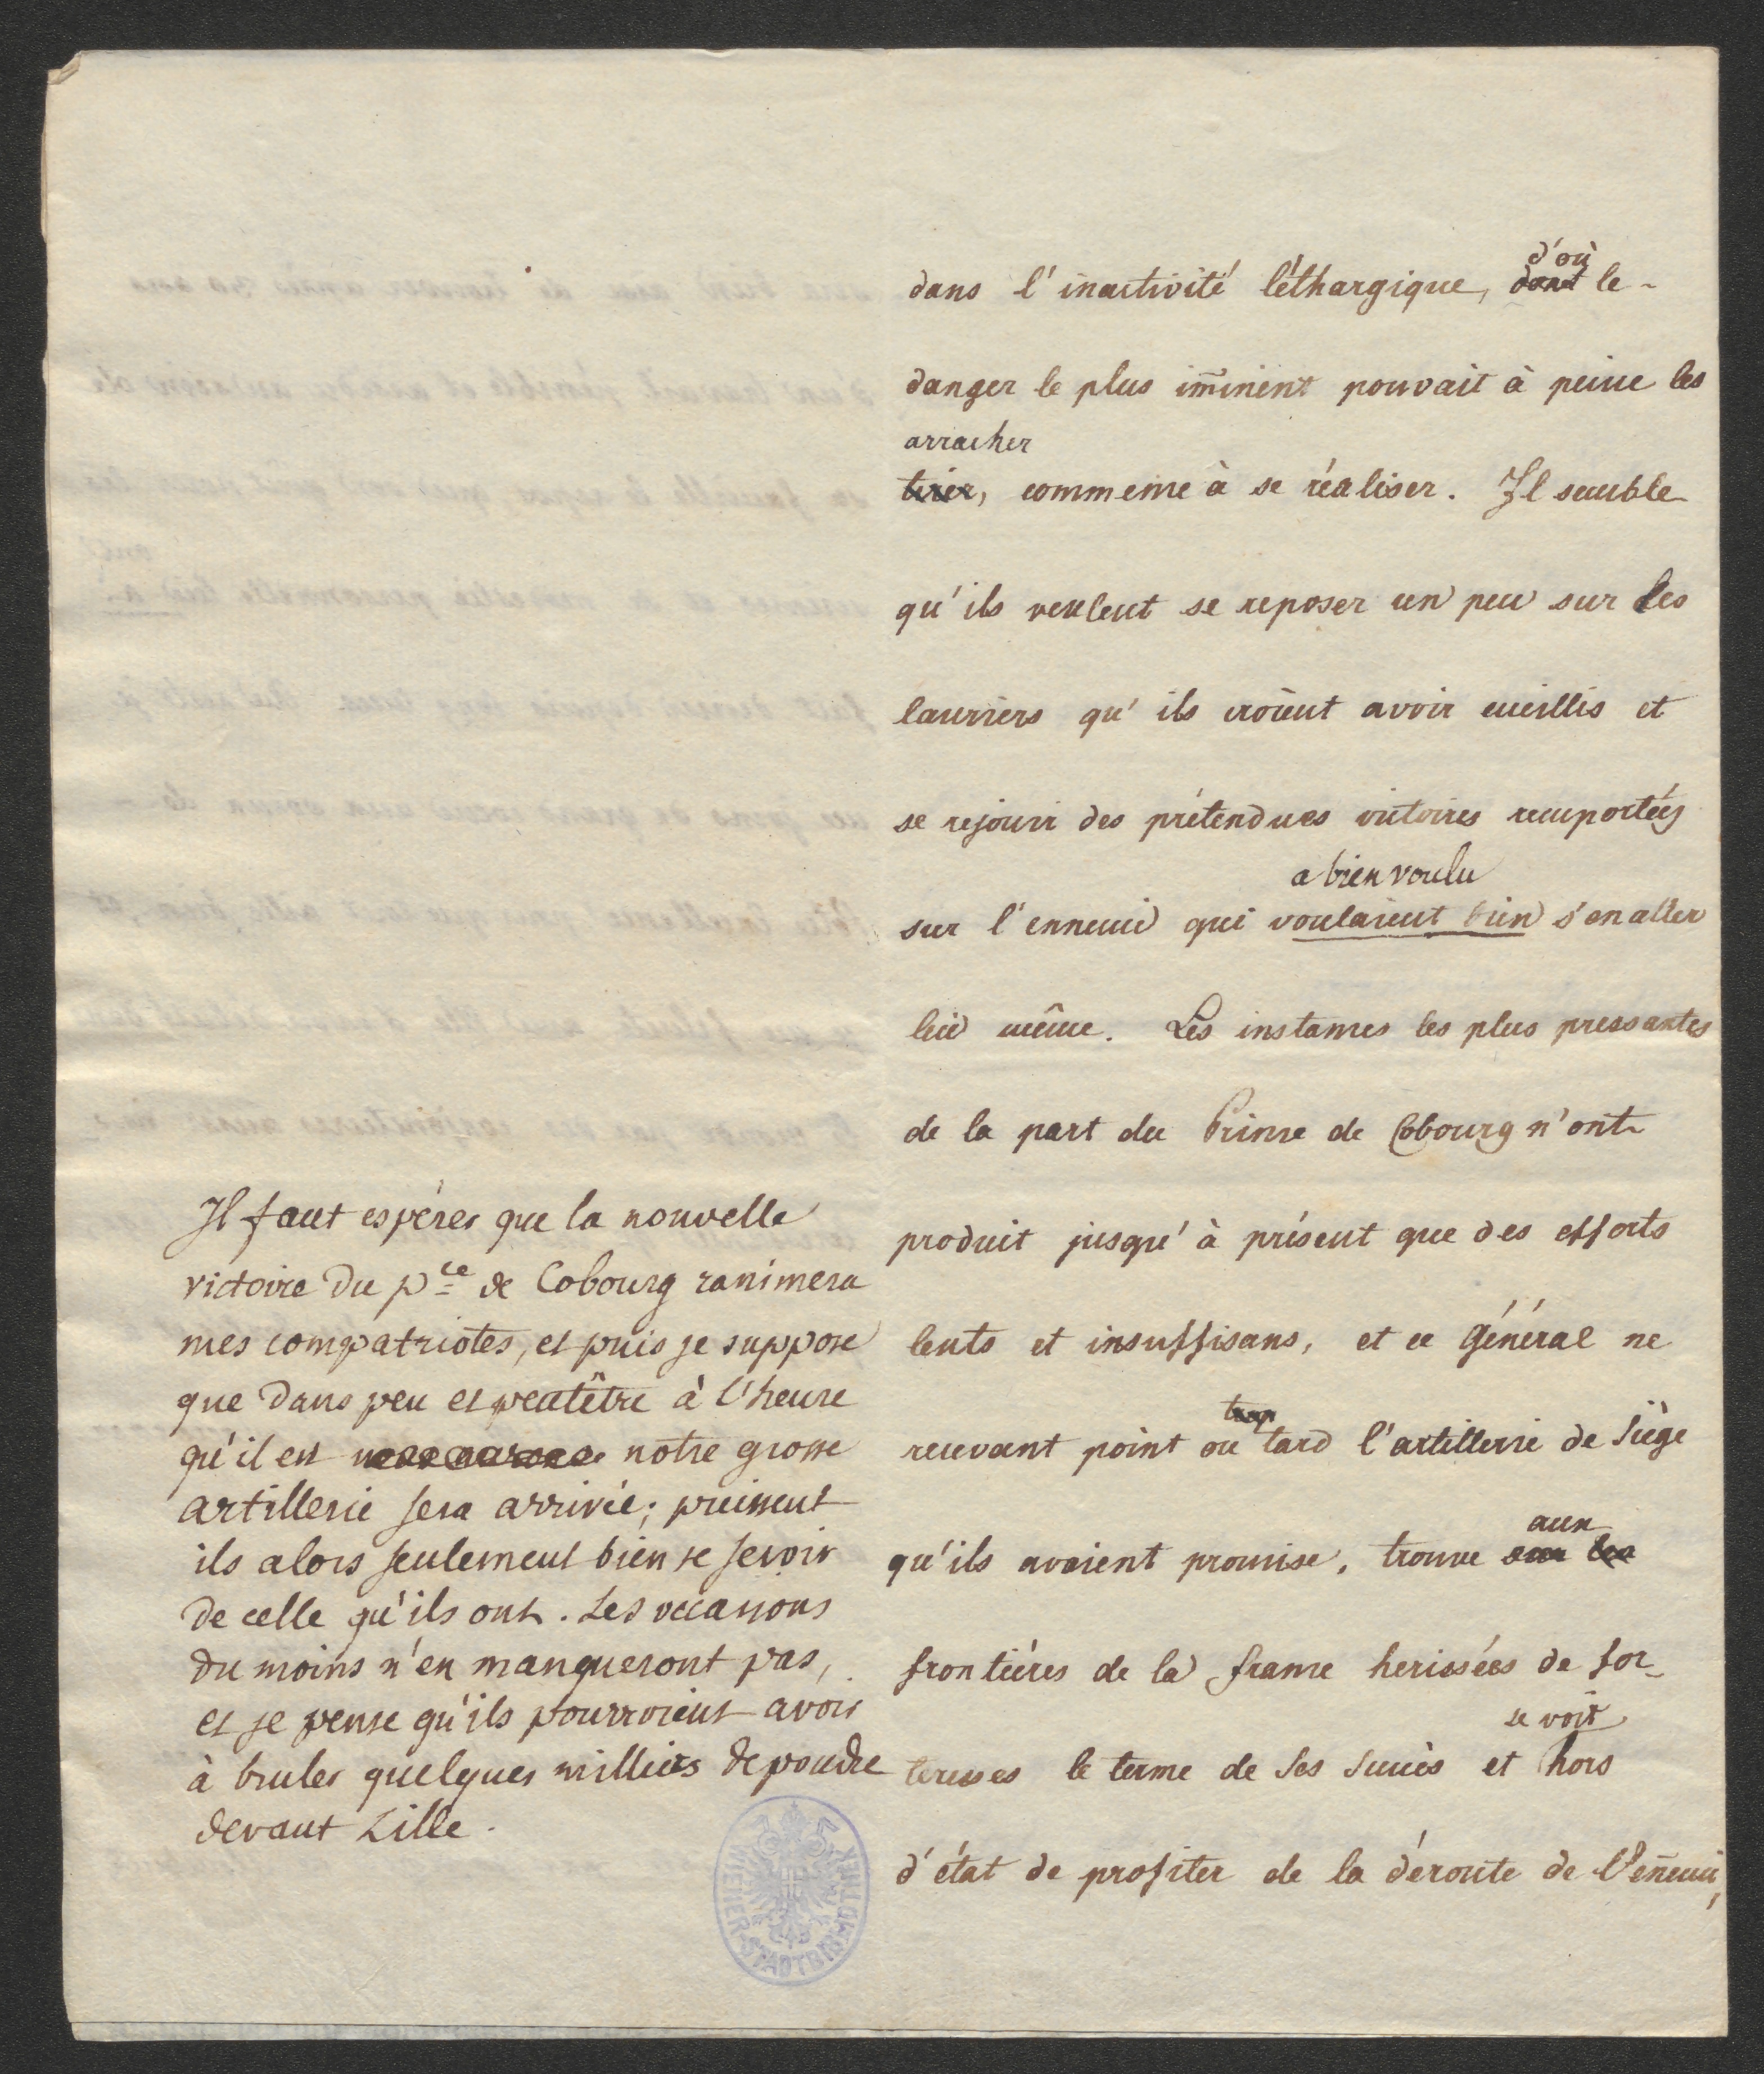 dans l'inactivité léthargique, d'où dont le-
danger le plus im̄inent pouvait à peine les
arracher
tirer, commence à se réaliser. Il semble
qu'ils veulent se reposer un peu sur les
lauriers qu'ils croient avoir cueillis et
se rejouir des prétendues victoires remportées
a bien voulu
sur l'ennemi qui voulaient bien s'en aller
lui même. Les instances les plus pressantes
de la part du Prince de Cobourg n'ont
produit jusqu'à présent que des efforts
lents et insuffisans, et ce Général ne
recevant point ou trop tard l'artillerie de siège
aux
qu'ils avaient promise, trouve sur les
frontiéres de la france herissées de for-
se voit
teresses le terme de ses succès et hors
d'état de profiter de la déroute de l'en̄emi,
Il faut espérer que la nouvelle
victoire du pce de Cobourg ranimera
mes compatriotes, et puis je suppose
que dans peu et peutêtre à l'heure
qu'il est notre grosse
artillerie sera arrivée; puissent
ils alors seulement bien se servir
de celle qu'ils ont. Les occasions
du moins n'en manqueront pas,
et je pense qu'ils pourroient avoir
à bruler quelques milliers de poudre
devant Lille.
WIENER STADTBIBLIOTHEK